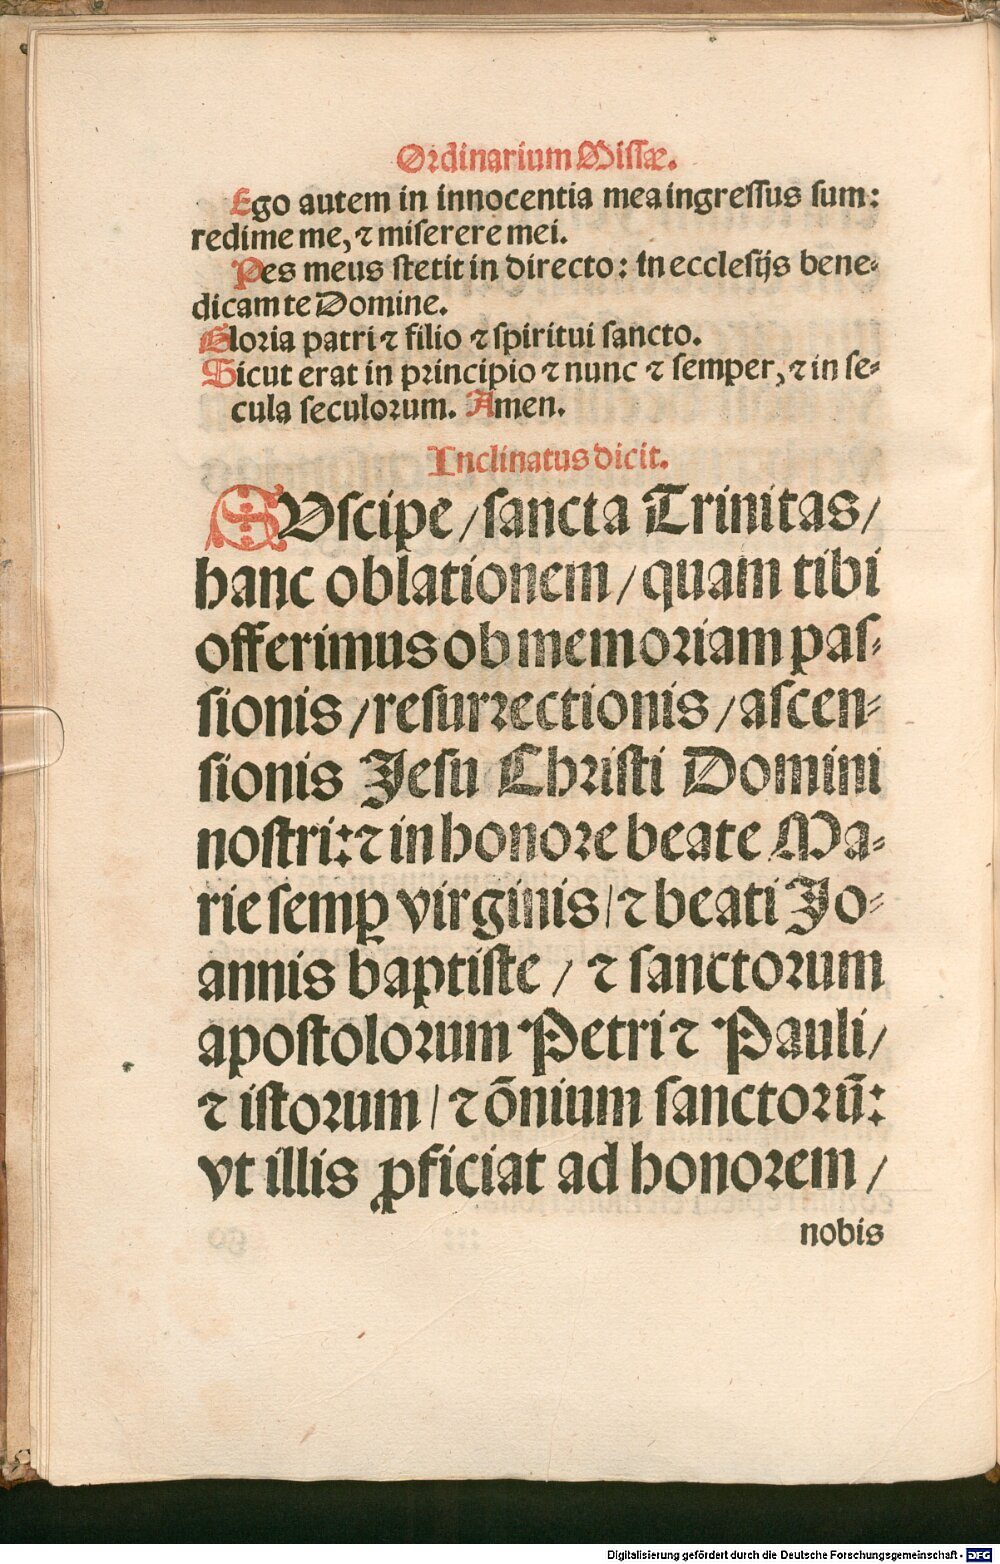 Ordinarium Missæ.
Ego autem in innocentia mea ingressus sum:
redime me, ⁊ miserere mei.
Pes meus stetit in directo: in ecclesijs bene-
dicam te Domine.
Gloria patri ⁊ filio ⁊ spiritui sancto.
Sicut erat in principio ⁊ nunc ⁊ semper, ⁊ in se-
cula seculorum. Amen.
Inclinatus dicit.
SVscipe / sancta Trinitas /
hanc oblationem / quam tibi
offerimus ob memoriam pas-
sionis / resurrectionis / ascen-
sionis Jesu Christi Domini
nostri: ⁊ in honore beate Ma-
rie semꝑ virginis / ⁊ beati Jo-
annis baptiste / ⁊ sanctorum
apostolorum Petri ⁊ Pauli /
⁊ istorum / ⁊ ōnium sanctorū:
vt illis ꝓficiat ad honorem /
nobis
Digitalisierung gefördert durch die Deutsche Forschungsgemeinschaft - DFG